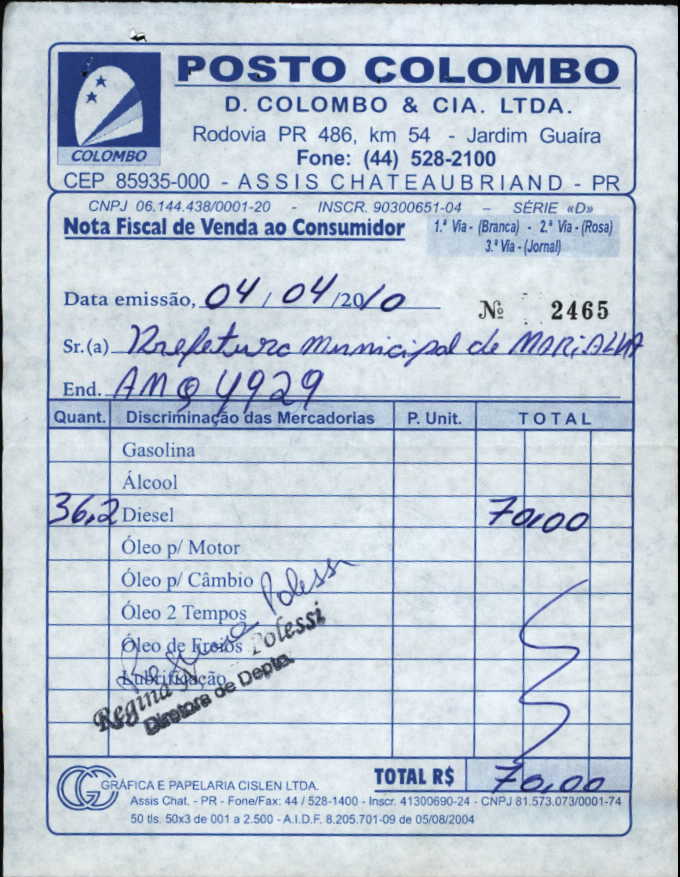 POSTO COLOMBO
D. COLOMBO & CIA. LTDA.
Rodovia PR 486, km 54 - Jardim Guaíra
Fone: (44) 528-2100
COLOMBO
CEP 85935-000 - ASSIS CHATEAUBRIAND - PR
CNPJ 06.144.438/0001-20 - INSCR. 90300651-04 - SÉRIE «D»
Nota Fiscal de Venda ao Consumidor
1.ª Via - (Branca) - 2.ª Via - (Rosa)
3.ª Via - (Jornal)
Data emissão, 04/04/2010
Nº 2465
Sr.(a) Prefeitura Municipal de MARIALVA
End. AMQ 4929
Quant. Discriminação das Mercadorias P. Unit. TOTAL
Gasolina
Álcool
36,2 Diesel 70,00
Óleo p/ Motor
Óleo p/ Câmbio
Óleo 2 Tempos
Óleo de Freios
Lubrificação
Polessi
Regina Polessi
Diretora de Depto.
TOTAL R$ 70,00
GRÁFICA E PAPELARIA CISLEN LTDA.
Assis Chat. - PR - Fone/Fax: 44 / 528-1400 - Inscr. 41300690-24 - CNPJ 81.573.073/0001-74
50 tls. 50x3 de 001 a 2.500 - A.I.D.F. 8.205.701-09 de 05/08/2004